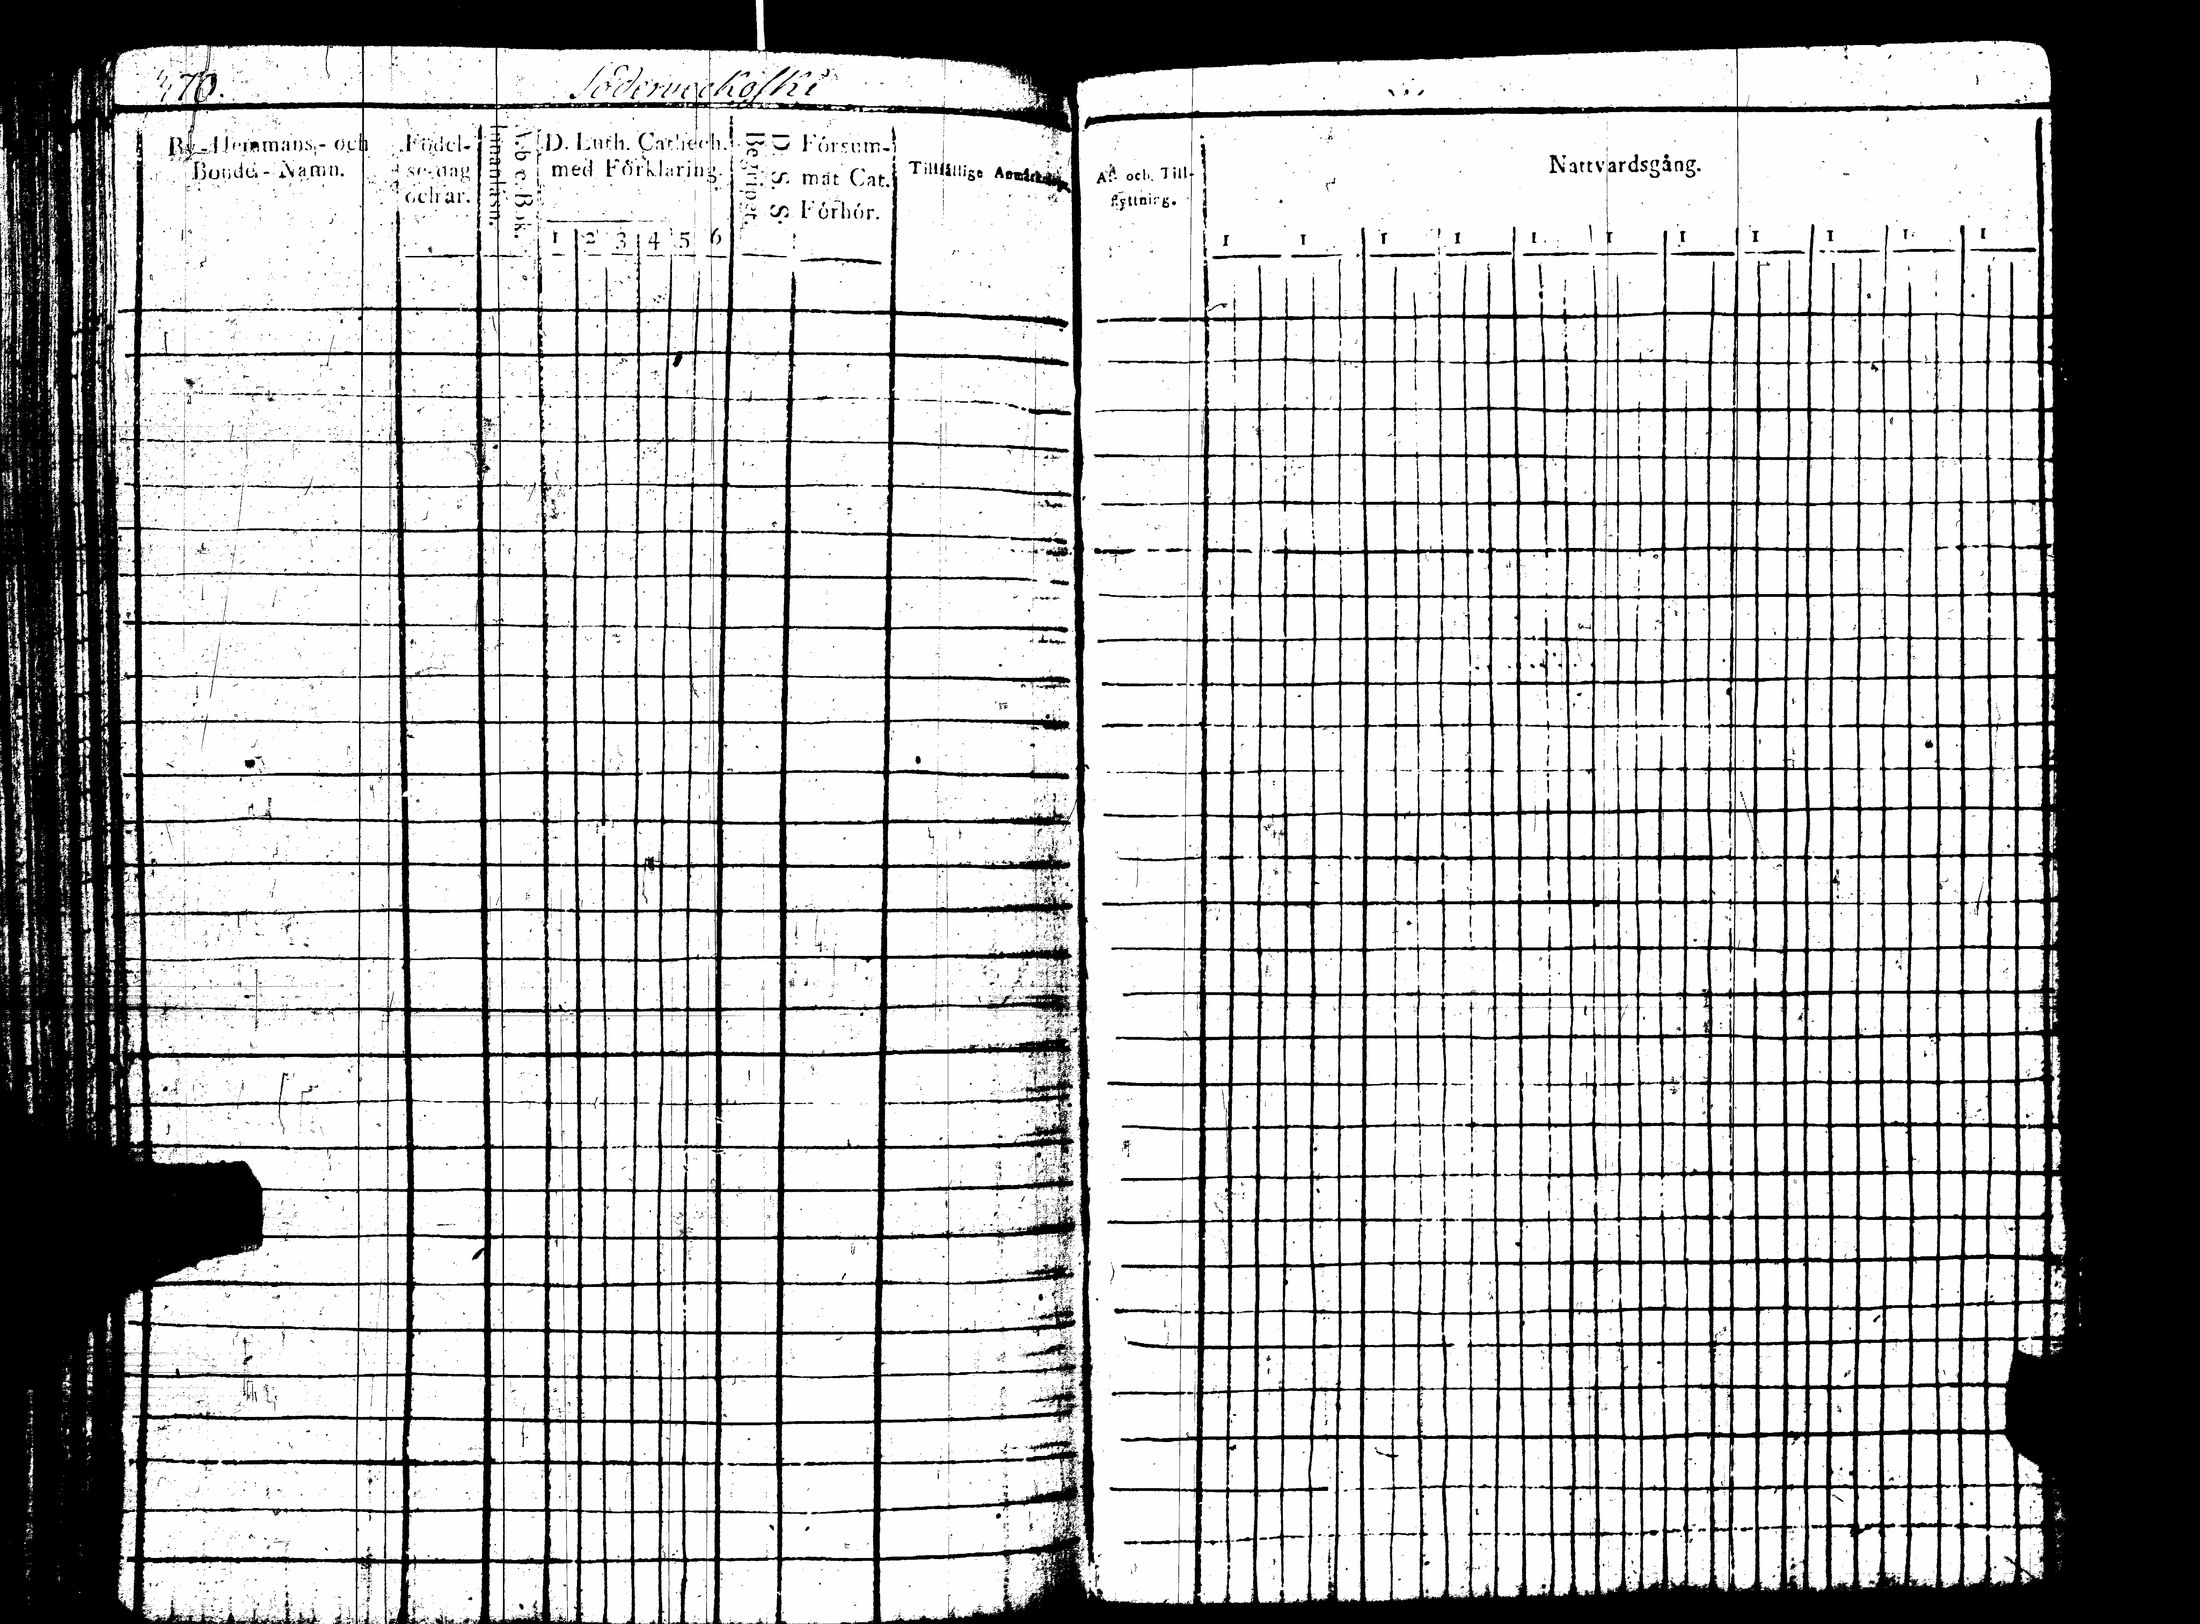 470.
Söderveckoski
By-Hemmans,- och
Bonde - Namn.
Födel-
se-dag
och år.
Innanläsn.
A. b. c. Bok.
D. Luth. Cathech.
med Förklaring.
1 2 3 4 5 6
Begripet.
D. S. S.
Försum-
mat Cat.
Förhör.
Tillfällige Anmärkning.
Af- och Till-
flyttning.
Nattvardsgång.
1 1 1 1 1 1 1 1 1 1 1